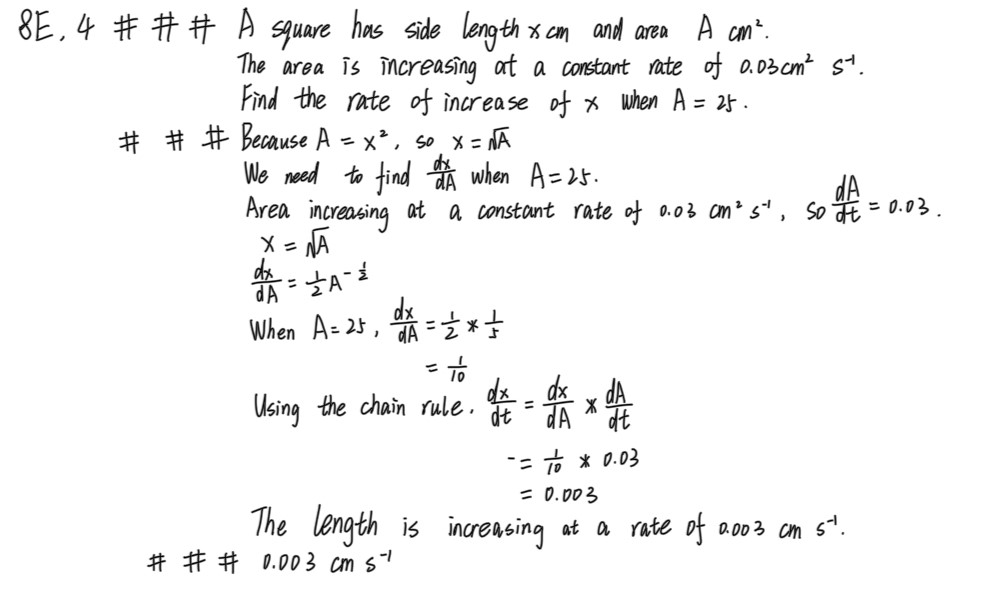 8E, 4 # # # A square has side length x cm and area A cm².
The area is increasing at a constant rate of 0.03cm² s⁻¹.
Find the rate of increase of x when A = 25.
# # # Because A = x², so x = √A
We need to find dx/dA when A = 25.
Area increasing at a constant rate of 0.03 cm² s⁻¹, so dA/dt = 0.03.
x = √A
dx/dA = 1/2 A^(-1/2)
When A = 25, dx/dA = 1/2 * 1/5
= 1/10
Using the chain rule. dx/dt = dx/dA * dA/dt
-= 1/10 * 0.03
= 0.003
The length is increasing at a rate of 0.003 cm s⁻¹.
# # # 0.003 cm s⁻¹